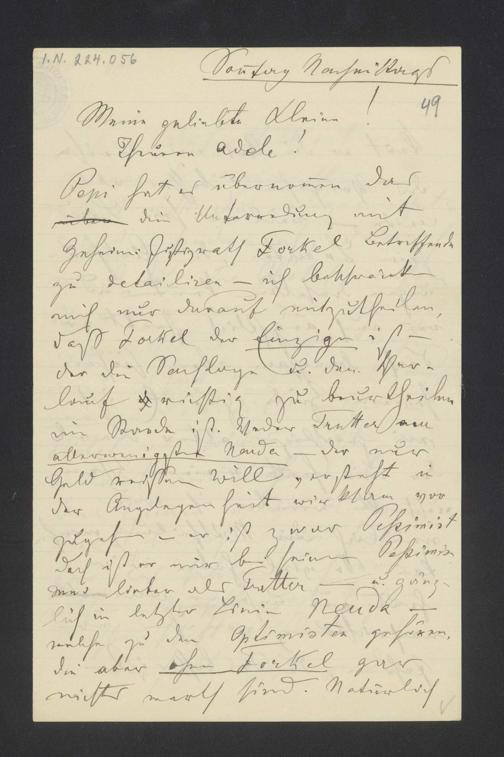 I.N. 224.056
Sonntag Nachmittags
49
Meine geliebte Kleine!
Theuere Adele!
Pepi hat es übernommen das
über die Unterredung mit
Geheim. Justizrath Forkel Betreffende
zu detailiren – ich beschränke
mich nur darauf mitzutheilen,
daß Forkel der Einzige ist –
der die Sachlage u. den Ver-
lauf richtig zu beurtheilen
im Stande ist. Weder Trutter am
allerwenigsten Neuda – der nur
Geld reißen will versteht in
der Angelegenheit wirksam vor
zugehen – er ist zwar Pessimist
doch ist er mir bei seinem Pessimis
mus lieber als Trutter – u. gänz-
lich in letzter Linie Neuda –
welche zu den Optimisten gehören,
die aber ohne Forkel gar
nichts werth sind. Natürlich